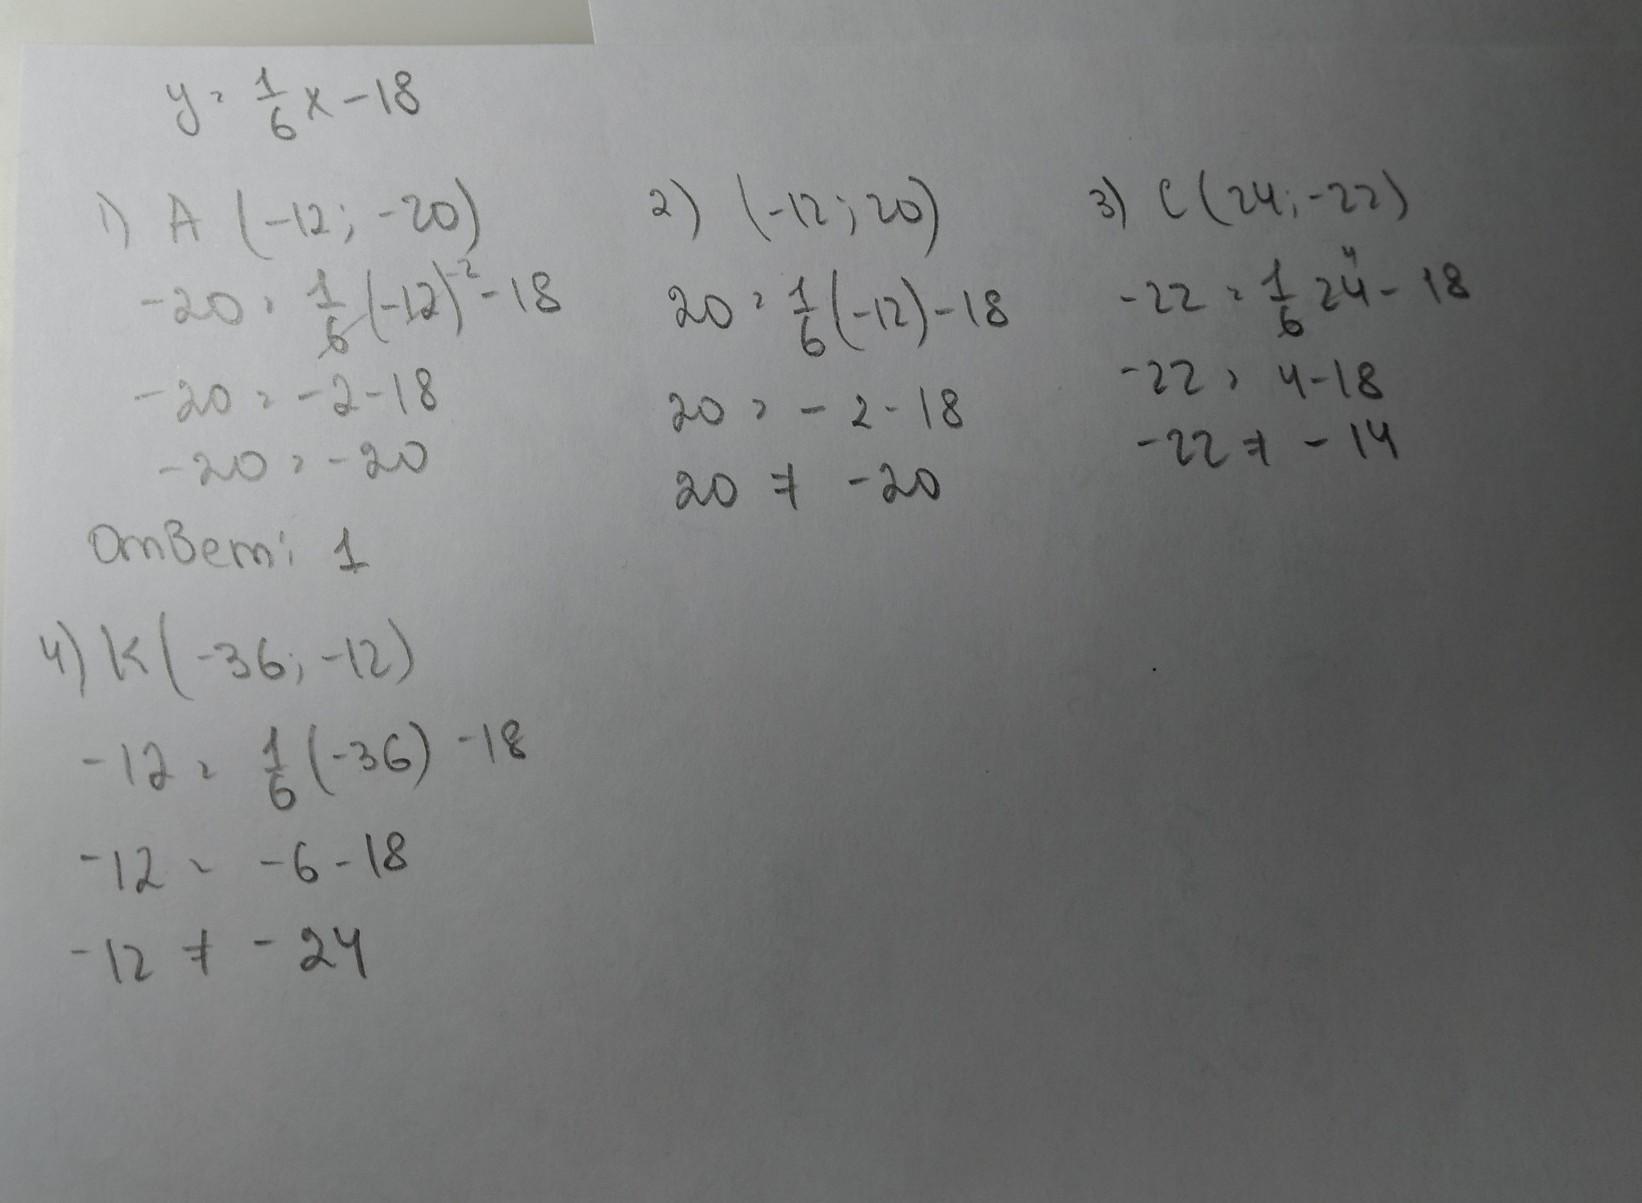 y = 1/6 x - 18
1) A (-12; -20)
-20 = 1/6 (-12)^-2 - 18
-20 = -2 - 18
-20 = -20
Ответ: 1
2) (-12; 20)
20 = 1/6 (-12) - 18
20 = - 2 - 18
20 ≠ -20
3) C (24; -22)
-22 = 1/6 24^4 - 18
-22 = 4 - 18
-22 ≠ - 14
4) K (-36; -12)
-12 = 1/6 (-36) - 18
-12 = -6 - 18
-12 ≠ - 24